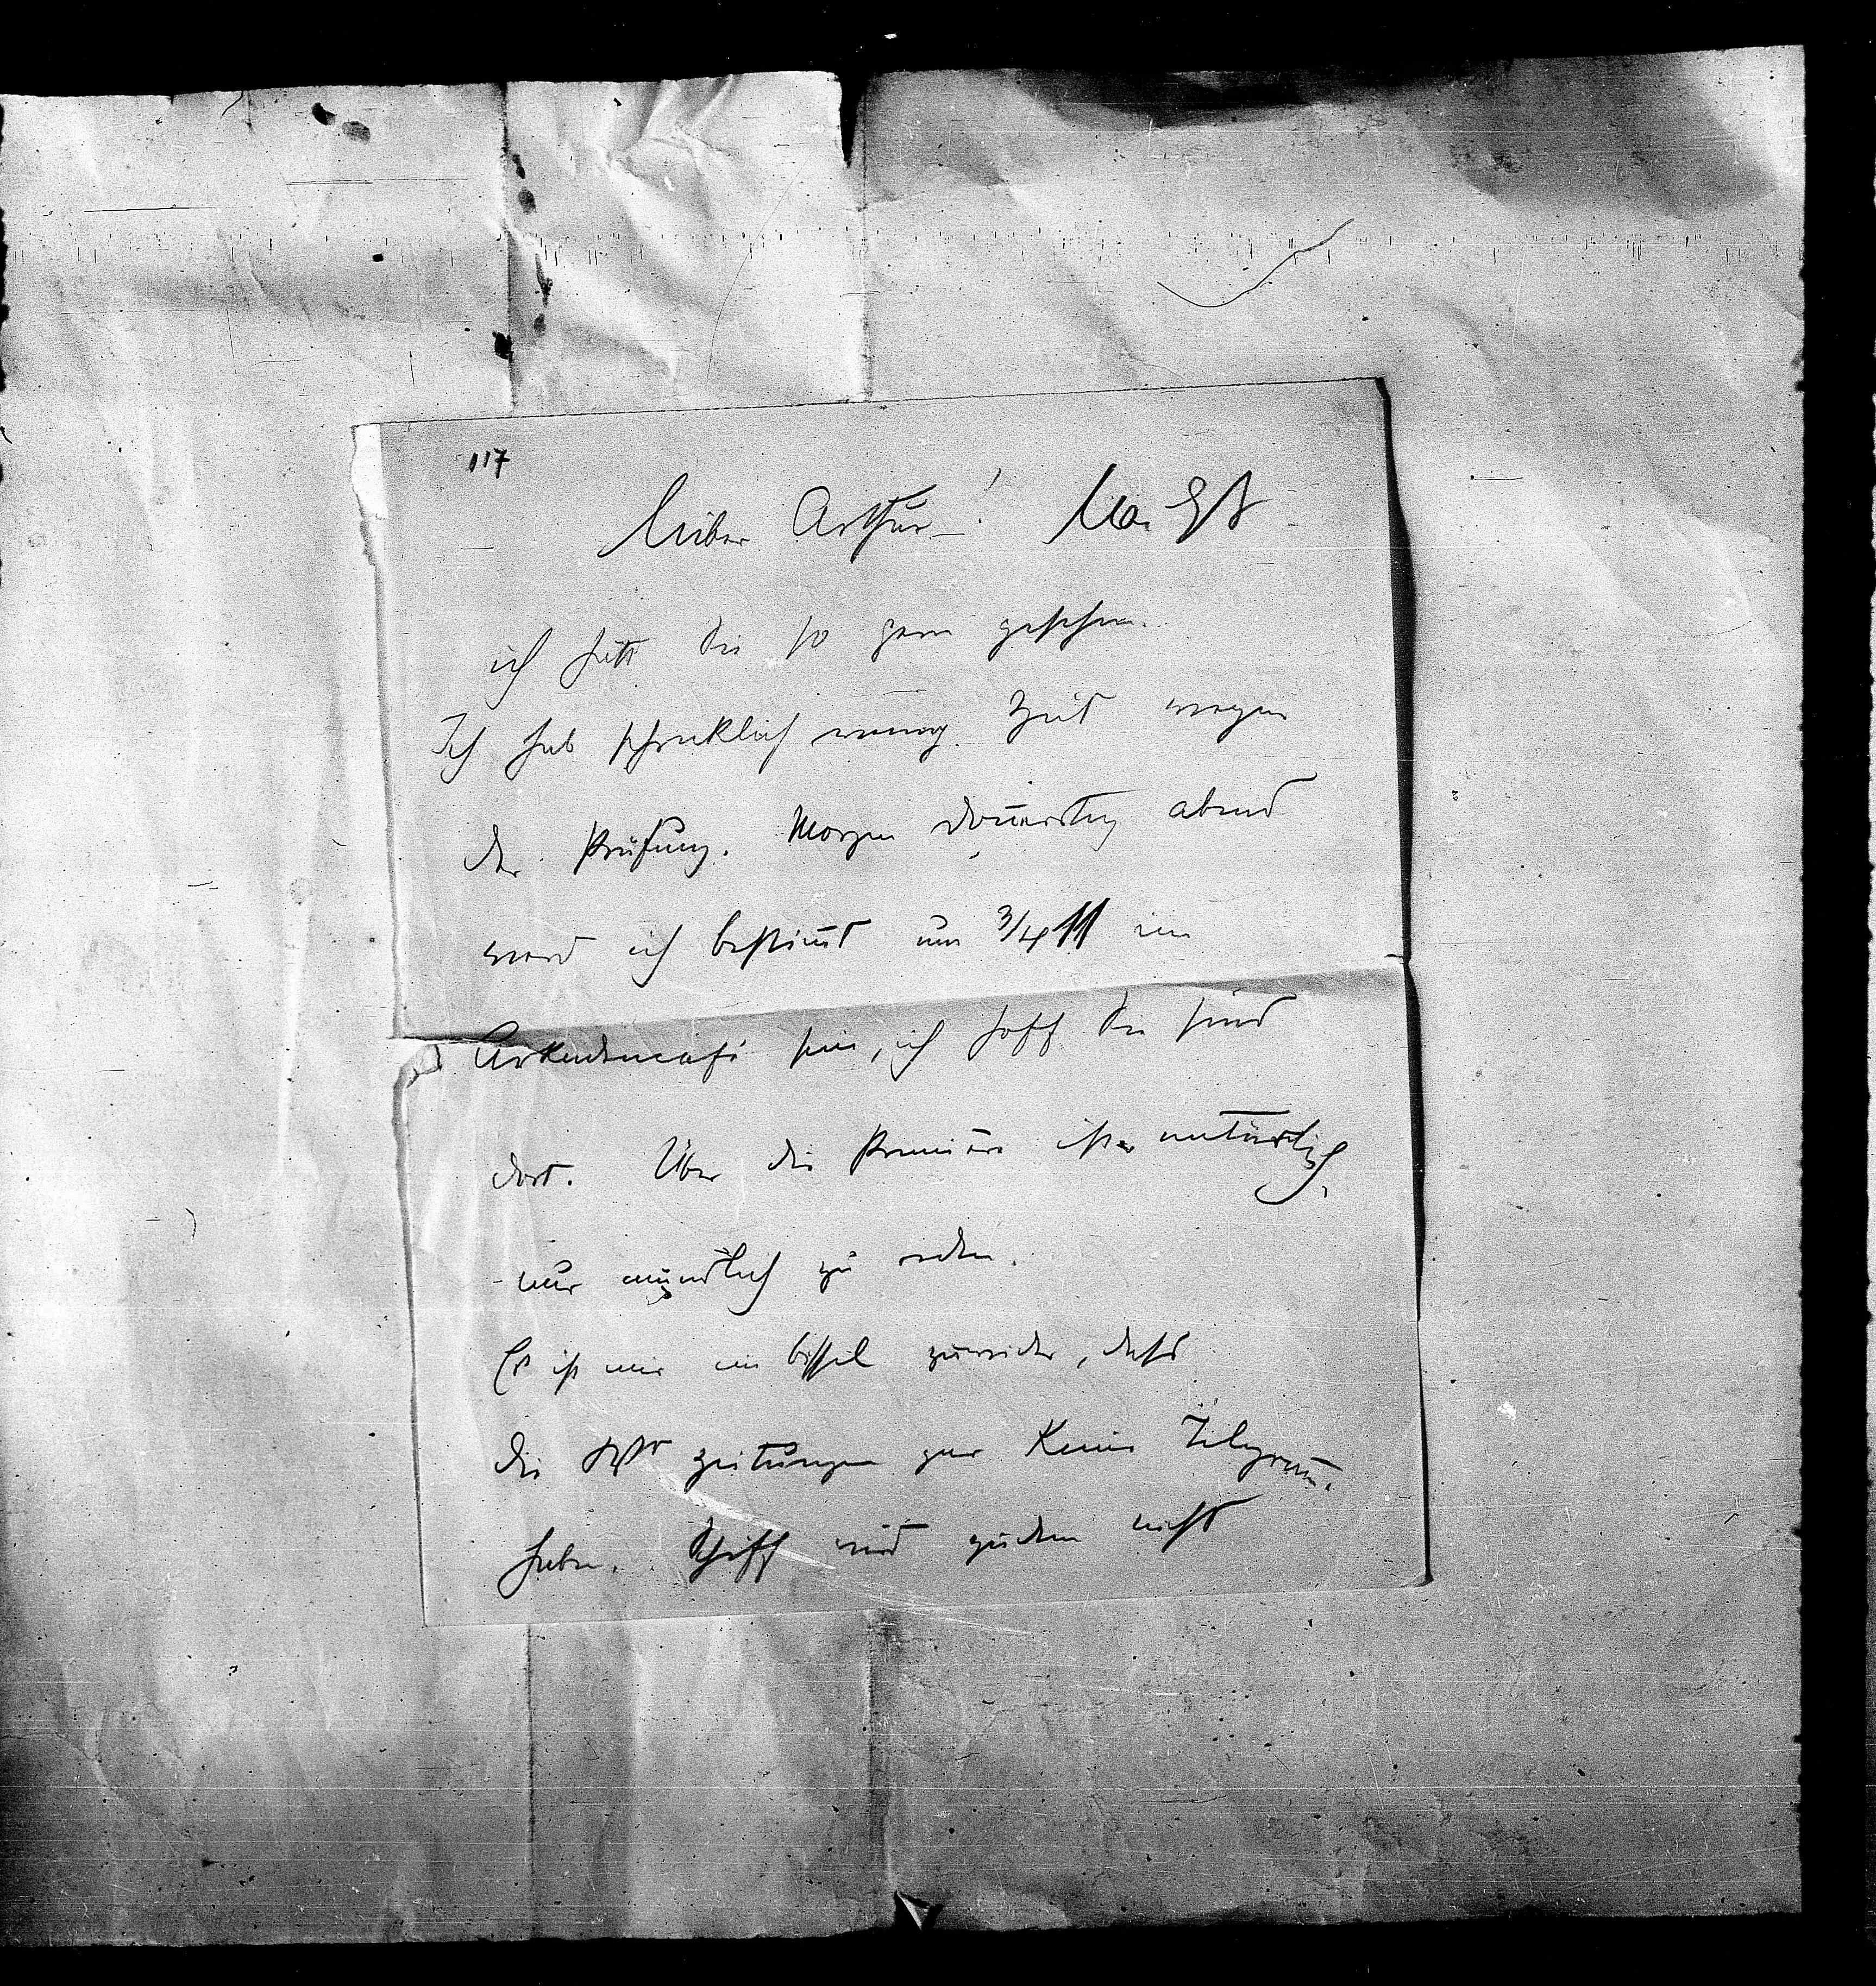 117
Lieber Arthur!
ich hätt Sie so gern gesehen.
Ich hab schrecklich wenig Zeit wegen
der Prüfung. Morgen Donnerstag abend
werd ich bestimt um 3/4 11 im
Arkadencafé sein, ich hoff Sie sind
dort. Über die Premiere ist natürlich
nur mündlich zu reden.
Es ist mir ein bissel zuwider, dass
die Wr Zeitungen gar keine Telegram̅e
haben. Schiff wird zudem nicht